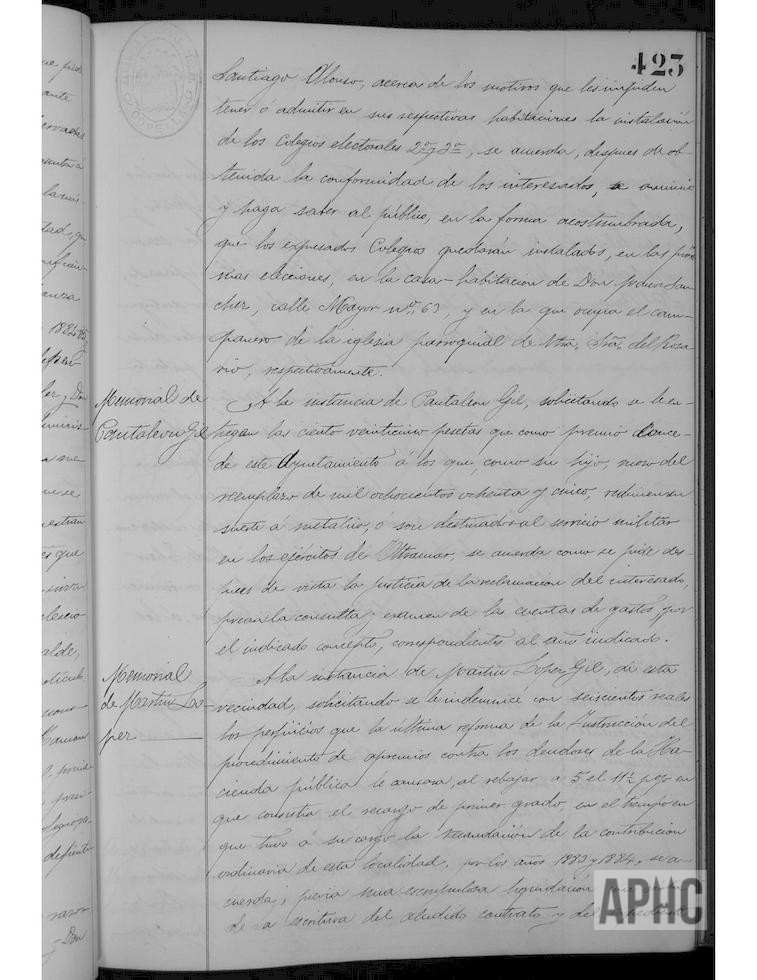 423
Santiago Alonso, acerca de los motivos que les impiden
tener ó admitir en sus respectivas habitaciones la instalación
de los Colegios electorales 2º y 3º, se acuerda, despues de ob-
tenida la conformidad de los interesados, se anuncie
y haga saber al público, en la forma acostumbrada,
que los expresados Colegios quedarán instalados, en las próxi
mas elecciones, en la casa-habitacion de Don San-
chez, calle Mayor nº 63, y en la que ocupa el cam-
panero de la iglesia parroquial de Ntra. Sra. del Rosa
rio, respectivamente.
Memorial de
Pantaleon Gil
A la instancia de Pantaleon Gil, solicitando se le en-
tregan las ciento veinticinco pesetas que como premio conce-
de este Ayuntamiento á los que, como su hijo, mozo del
reemplazo de mil ochocientos ochenta y cinco, rediman su
suerte á metálico, ó son destinados al servicio militar
en los ejércitos de Ultramar, se acuerda como se pide des-
pues de vista la justicia de la reclamacion del interesado,
previa la consulta y exámen de las cuentas de gastos, por
el indicado concepto, correspondientes al año indicado.
Memorial
de Martin Lo-
pez
A la instancia de Martin Lopez Gil, de esta
vecindad, solicitando se le indemnice con seiscientos reales
los perjuicios que la última reforma de la Instrucción del
procedimiento de apremios contra los deudores de la Ha-
cienda pública le causara, al rebajar á 5 el 11 p% en
que consistia el recargo de primer grado, en el tiempo en
que tuvo á su cargo la recaudación de la contribucion
ordinaria de esta localidad, por los años 1883 y 1884, se a-
cuerda, previa una escrupulosa liquidación
de la escritura del aludido contrato y del expediente
APHC